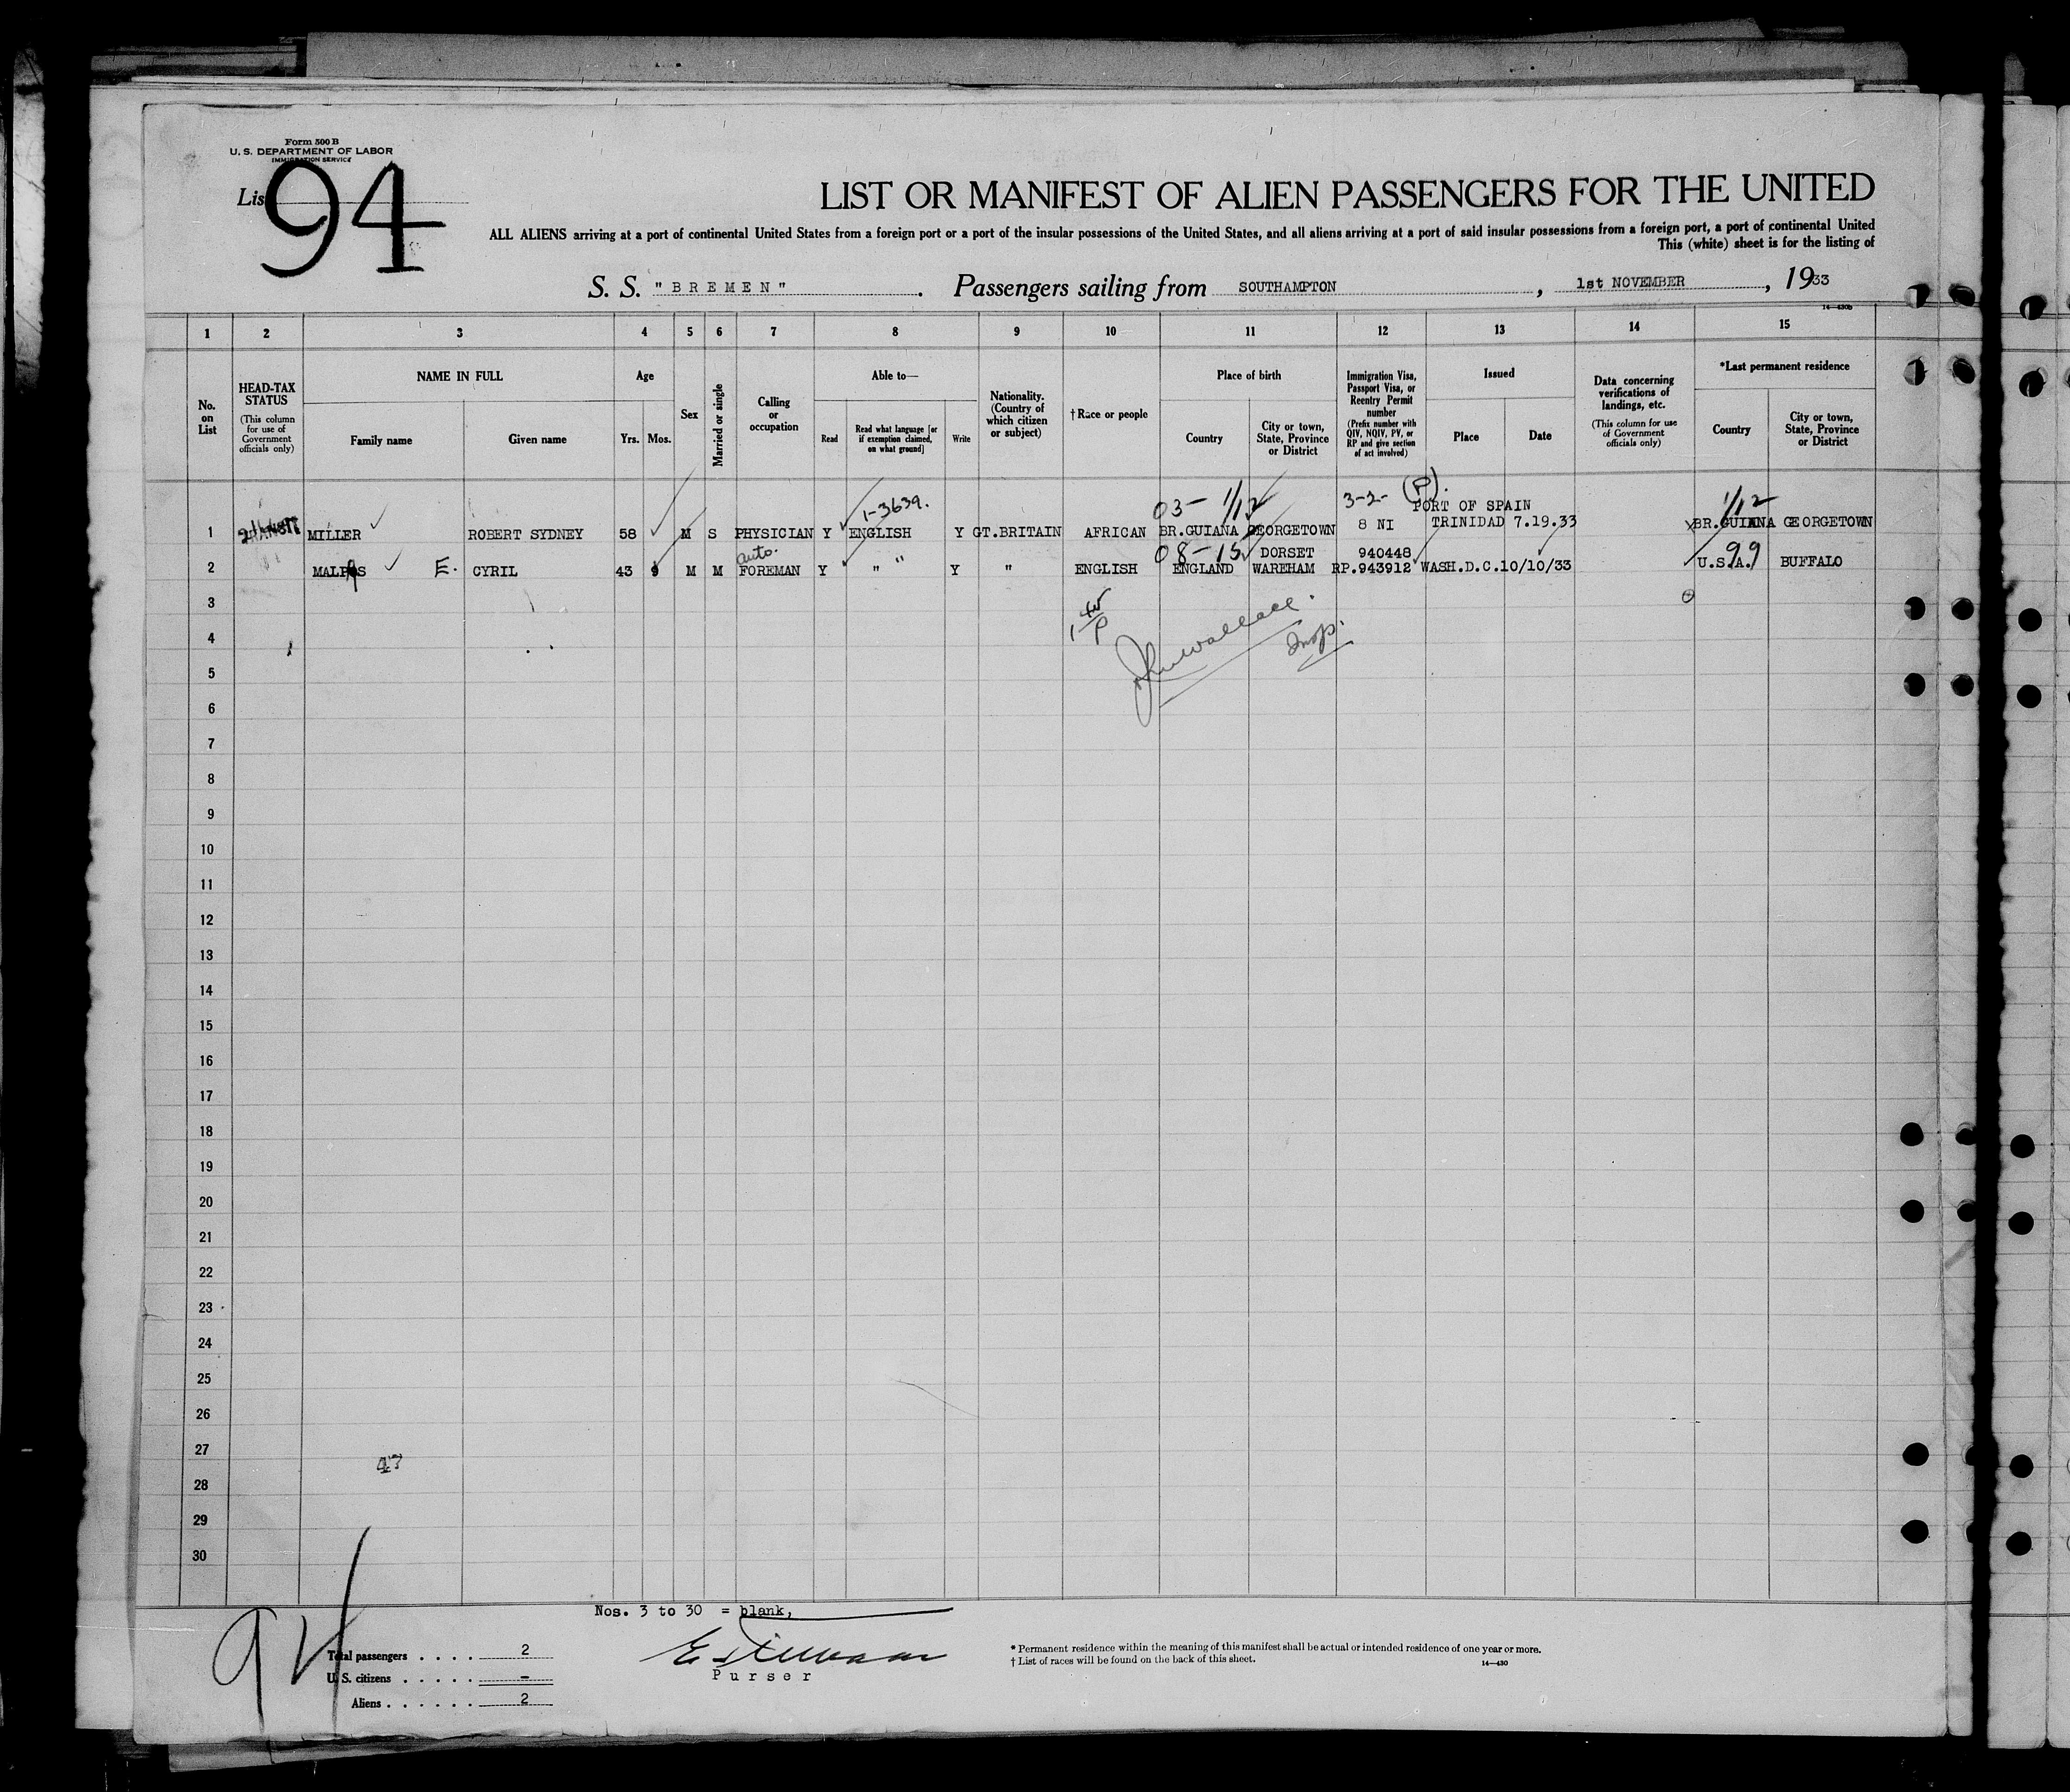 Form 500 B
U. S. DEPARTMENT OF LABOR
IMMIGRATION SERVICE
List 94
LIST OR MANIFEST OF ALIEN PASSENGERS FOR THE UNITED
ALL ALIENS arriving at a port of continental United States from a foreign port or a port of the insular possessions of the United States, and all aliens arriving at a port of said insular possessions from a foreign port, a port of continental United
This (white) sheet is for the listing of
S. S. "BREMEN". Passengers sailing from SOUTHAMPTON, 1st NOVEMBER, 1933
14—430b
1 2 3 4 5 6 7 8 9 10 11 12 13 14 15
No. on List
HEAD-TAX STATUS (This column for use of Government officials only)
NAME IN FULL
Family name
Given name
Age
Yrs. Mos.
Sex
Married or single
Calling or occupation
Able to—
Read
Read what language [or if exemption claimed, on what ground]
Write
Nationality. (Country of which citizen or subject)
† Race or people
Place of birth
Country
City or town, State, Province or District
Immigration Visa, Passport Visa, or Reentry Permit number (Prefix number with QIV, NQIV, PV, or RP and give section of act involved)
Issued
Place
Date
Data concerning verifications of landings, etc. (This column for use of Government officials only)
*Last permanent residence
Country
City or town, State, Province or District
1-3639. 03- 1/12 3-2- (P). PORT OF SPAIN 1/12
1 MILLER ROBERT SYDNEY 58 M S PHYSICIAN Y ENGLISH Y GT.BRITAIN AFRICAN BR.GUIANA GEORGETOWN 8 NI TRINIDAD 7.19.33 BR.GUIANA GEORGETOWN
auto. 08-15 DORSET 940448 99
2 MALPAS E. CYRIL 43 9 M M FOREMAN Y " " Y " ENGLISH ENGLAND WAREHAM RP.943912 WASH.D.C.10/10/33 U.S.A. BUFFALO
3
4
Insp.
5
6
7
8
9
10
11
12
13
14
15
16
17
18
19
20
21
22
23
24
25
26
27
47
28
29
30
Nos. 3 to 30 = blank,
94
Total passengers . . . . 2
U. S. citizens . . . . . –
Aliens . . . . . . 2
Purser
* Permanent residence within the meaning of this manifest shall be actual or intended residence of one year or more.
† List of races will be found on the back of this sheet.
14—430